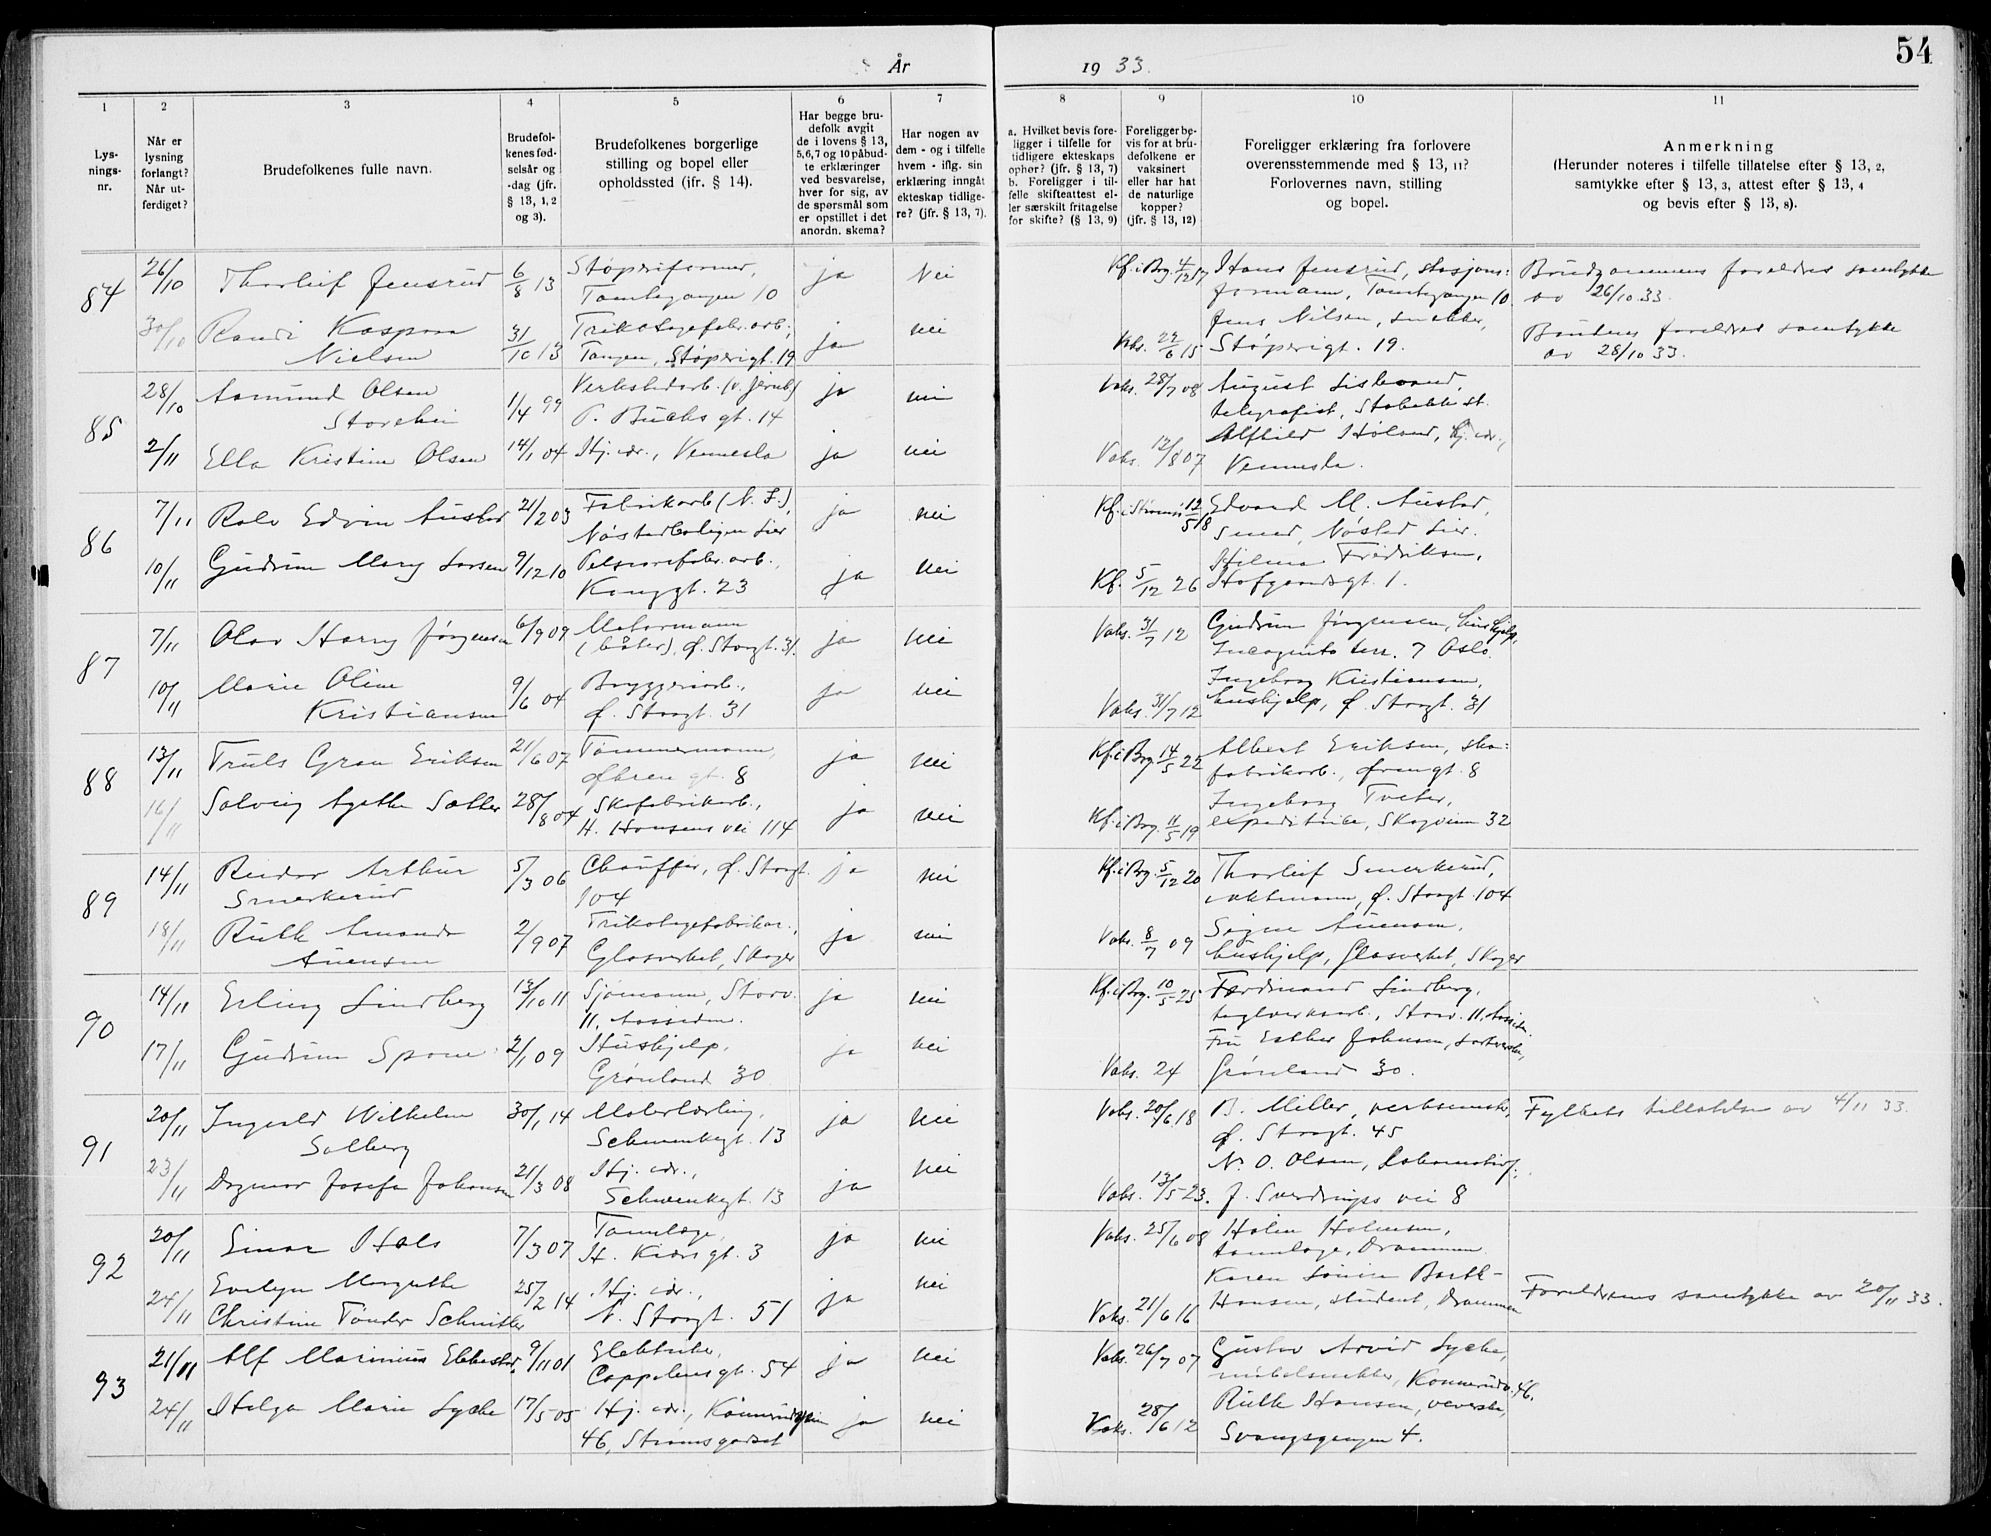 54
År 1933.
1
2
3
4
5
6
7
8
9
10
11
Lys-
nings-
nr.
Når er
lysning
forlangt?
Når ut-
ferdiget?
Brudefolkenes fulle navn.
Brudefol-
kenes fød-
selsår og
-dag (jfr.
§ 13, 1, 2
og 3).
Brudefolkenes borgerlige
stilling og bopel eller
opholdssted (ifr. § 14).
Har begge bru-
defolk avgit
de i lovens § 13,
5,6,7 og 10 påbud-
te erklæringer
ved besvarelse,
hver for sig, av
de spørsmål som
er opstillet i det
anordn. skema?
Har nogen av
dem - og i tilfelle
hvem - iflg. sin
erklæring inngåt
ekteskap tidlige-
re? (jfr. § 13, 7).
a. Hvilket bevis fore-
ligger i tilfelle for
tidligere ekteskaps
ophør? (jfr. § 13, 7)
b. Foreligger i til-
felle skifteattest el-
ler særskilt fritagelse
for skifte? (§ 13, 9)
Foreligger be-
vis for at bru-
defolkene er
vaksinert
eller har hat
de naturlige
kopper?
(jfr. § 13, 12)
Foreligger erklæring fra forlovere
overensstemmende med § 13, 11?
Forlovernes navn, stilling
og bopel.
Anmerkning
(Herunder noteres i tilfelle tillatelse efter § 13, 2,
samtykke efter § 13, 3, attest efter § 13, 4
og bevis efter § 13, 8).
84
26/10 Thorleif Jensrud 6/8 13 Støperiformer, ja Nei Kf. i Brg. 4/12 17 Hans Jensrud, stasjons= Brudgommens foreldres samtykke
Tomtegangen 10 formann, Tomtegangen 10 av 26/10 33.
30/10 Randi Kaspara 31/10 13 Trikotagefabr.arb., ja nei Vaks. 22/6 15 Jens Nilsen, snekker, Brudens foreldres samtykke
Nielsen Tangen, Støperigt. 19 Støperigt. 19. av 28/10 33.
85
28/10 Aamund Olsen 1/4 99 Verkstedarb. (v. Jernb.) ja nei Vaks. 28/7 08 August
P. Buchs gt. 14 telegrafist, Stabekk st.
2/11 Ella Kristine Olsen 14/1 04 Hj. vær., Vennesla ja nei Vaks. 12/8 07 Alfhild Høland, hj. vær.,
Vennesla.
86
7/11 Rolv Edvin Austad 21/2 03 Fabrikarb. (N. F.), ja nei Kf. i Strømsø 12/5 18 Edvard M. Austad,
Nøstedboligen Lier smed, Nøsted Lier.
10/11 Gudrun Mary Larsen 9/12 10 Pelsvarefabr.arb., ja nei Kf. 5/12 26 Hilma Fredriksen,
Konggt. 23 Hofgaardsgt. 1.
87
7/11 Olav Harry Jørgensen 6/9 09 Motormann ja nei Vaks. 31/7 12 Gudrun Jørgensen, hushjelp,
(båter), ø. Storgt. 31. Incognito terr. 7 Oslo.
10/11 Marie Oline 9/6 04 Bryggeriarb., ja nei Vaks. 31/7 12 Ingeborg Kristiansen,
Kristiansen ø. Storgt. 31 hushjelp, ø. Storgt. 31
88
13/11 Truls Gran Eriksen 21/6 07 Tømmermann, ja nei Kf. i Brg. 14/5 22 Albert Eriksen, sko=
Øhren gt. 8 fabrikarb., Ørengt. 8
16/11 Solveig Agathe Sæther 28/8 04 Skofabrikarb., ja nei Kf. i Brg. 11/5 19 Ingeborg Tveter,
H. Hansens vei 114 expeditrice, Skogveien 32
89
14/11 Reidar Arthur 5/3 06 Chauffør, ø. Storgt. ja nei Kf. i Brg. 5/12 20 Thorleif Smerkerud,
Smerkerud 104 vaktmann, ø. Storgt. 104
18/11 Ruth Amanda 2/9 07 Trikotagefabrikar., ja nei Vaks. 8/7 09 Signe Auensen,
Auensen Glasverket, Skoger hushjelp, Glasverket, Skoger
90
14/11 Erling Lindberg 13/10 11 Sjømann, Storv. ja nei Kf. i Brg. 10/5 25 Ferdinand Lindberg,
11, Aassiden. teglverksarb., Storv. 11. Aassiden.
17/11 Gudrun Spone 2/1 09 Hushjelp, ja nei Vaks. 24 Fru Esther Johnsen,
Grønland 30 Grønland 30.
91
20/11 Ingvald Wilhelm 30/1 14 Malerlærling, ja nei Vaks. 20/6 18 B. Miller, verksmstr., Fylkets tillatelse av 4/11 33.
Solberg Schwenkegt. 13 ø. Storgt. 45
23/11 Dagmar Josefa Johansen 21/3 08 Hj. vær., ja nei Vaks. 13/5 23. N. O. Olsen, Lokomotivf.,
Schwenkegt. 13 J. Sverdrups vei 8
92
20/11 Einar Hals 7/3 07 Tannlæge, ja nei Vaks. 25/6 08 Holm Holmsen,
H. Kiærs gt. 3 tannlæge, Drammen.
24/11 Evelyn Margrethe 25/2 14 Hj. vær., ja nei Vaks. 21/6 16 Karen Barth- Foreldrenes samtykke av 20/11 33.
Christine Tønder Schnitler N. Storgt. 51 Hansen, student, Drammen
93
21/11 Alf Marinius Ebbestad 9/11 01 Elektriker, ja nei Vaks. 26/7 07 Gustav Arvid Lycke,
Cappelensgt. 54 møbelsnekker, Konnerudv. 46.
24/11 Helga Marie Lycke 17/5 05 Hj. vær., Konnerudveien ja nei Vaks. 28/6 12 Ruth Hansen, veverske,
46, Strømsgodset Svangsgangen 4.